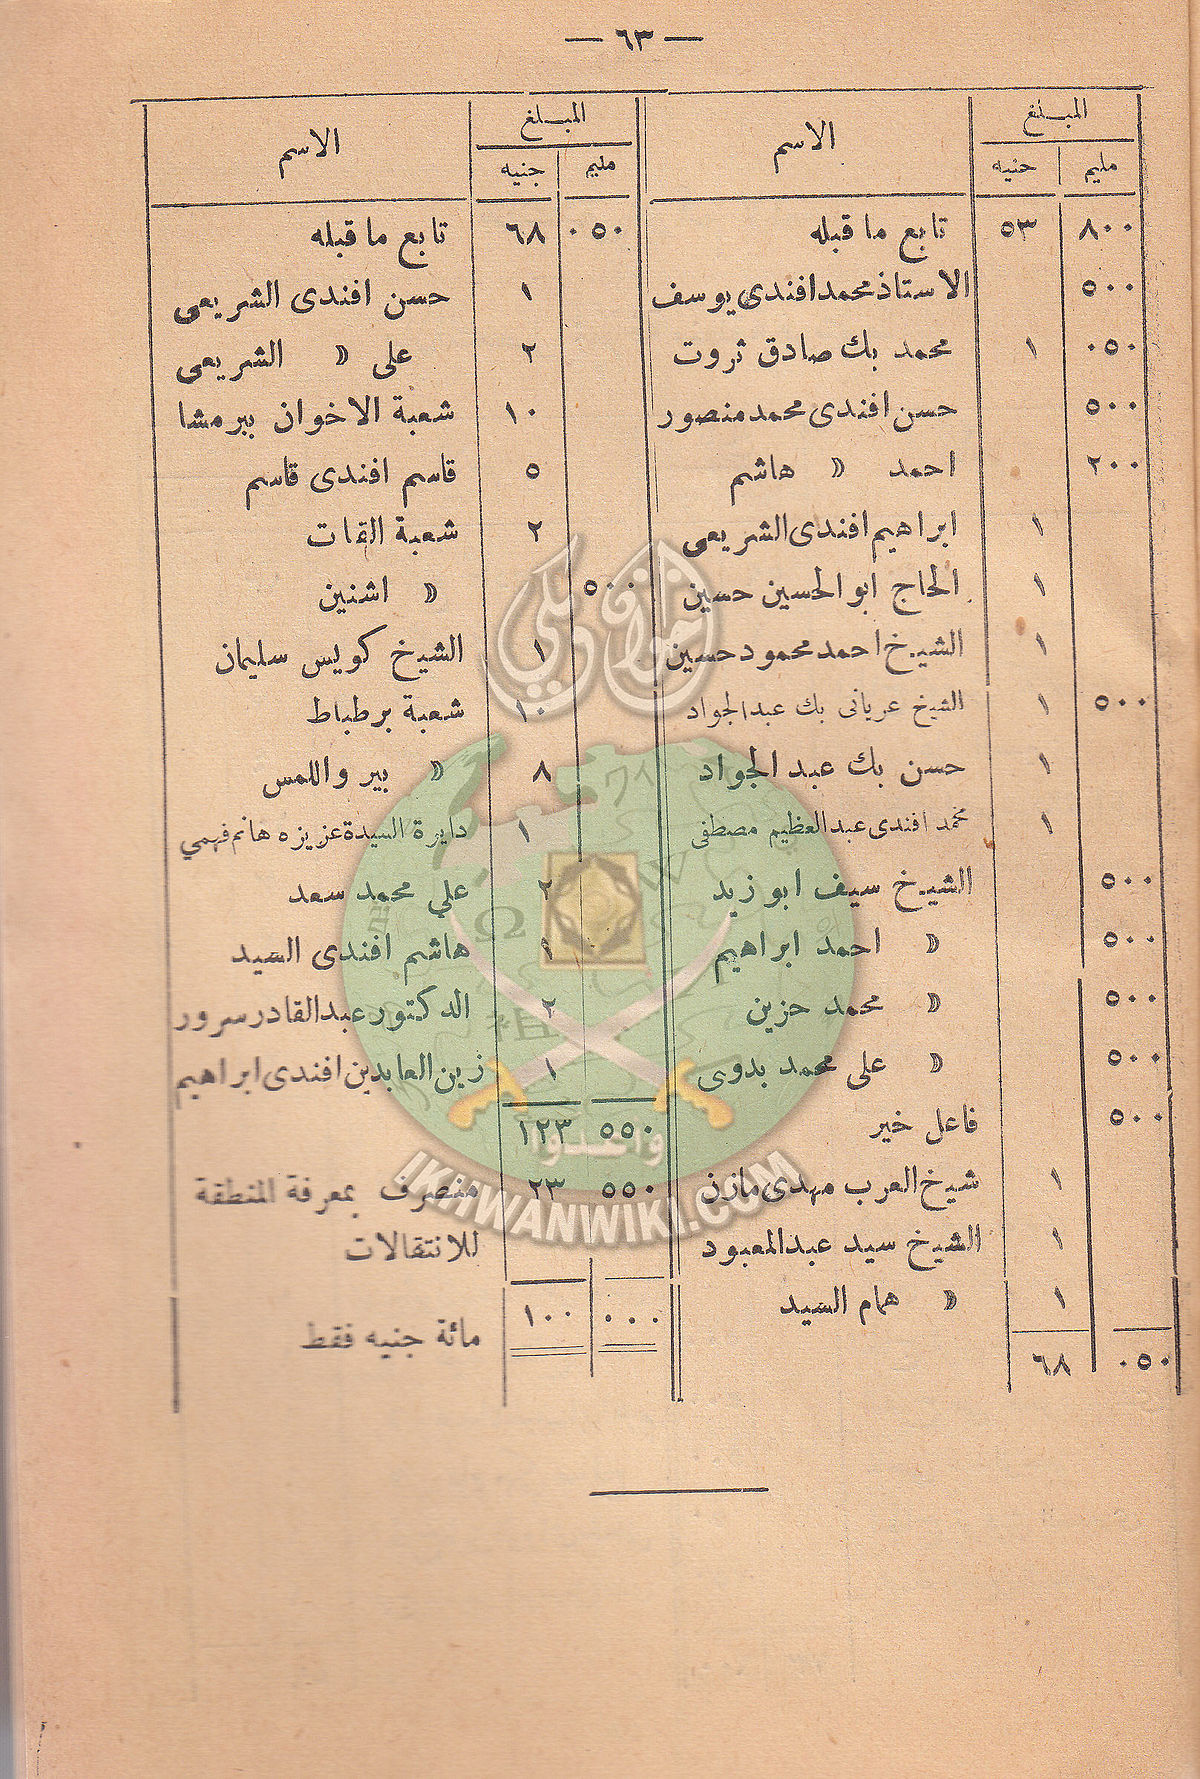 — ٦٣ —
المبلغ
مليم جنيه الاسم
٨٠٠ ٥٣ تابع ما قبله
٥٠٠ الاستاذ محمد افندى يوسف
٠٥٠ ١ محمد بك صادق ثروت
٥٠٠ حسن افندى محمد منصور
٢٠٠ احمد » هاشم
١ ابراهيم افندى الشريعى
١ الحاج ابو الحسين حسين
١ الشيخ احمد محمود حسين
٥٠٠ ١ الشيخ عريانى بك عبد الجواد
١ حسن بك عبد الجواد
١ محمد افندى عبد العظيم مصطفى
٥٠٠ الشيخ سيف ابو زيد
٥٠٠ » احمد ابراهيم
٥٠٠ » محمد حزين
٥٠٠ » على محمد بدوى
٥٠٠ فاعل خير
١ شيخ العرب مهدى مازن
١ الشيخ سيد عبد المعبود
١ » همام السيد
٠٥٠ ٦٨
المبلغ
مليم جنيه الاسم
٠٥٠ ٦٨ تابع ما قبله
١ حسن افندى الشريعى
٢ على » الشريعى
١٠ شعبة الاخوان ببرمشا
٥ قاسم افندى قاسم
٢ شعبة القات
٥٠٠ » اشنين
١ الشيخ كويس سليمان
١٠ شعبة برطباط
٨ » بير واللمس
١ دايرة السيدة عزيزه هانم فهمي
٢ علي محمد سعد
١ هاشم افندى السيد
٢ الدكتور عبد القادر سرور
١ زين العابدين افندى ابراهيم
٥٥٠ ١٢٣
٥٥٠ ٢٣ منصرف بمعرفة المنطقة
للانتقالات
٠٠٠ ١٠٠ مائة جنيه فقط
إخوان ويكي
وأعدوا
IKHWANWIKI.COM